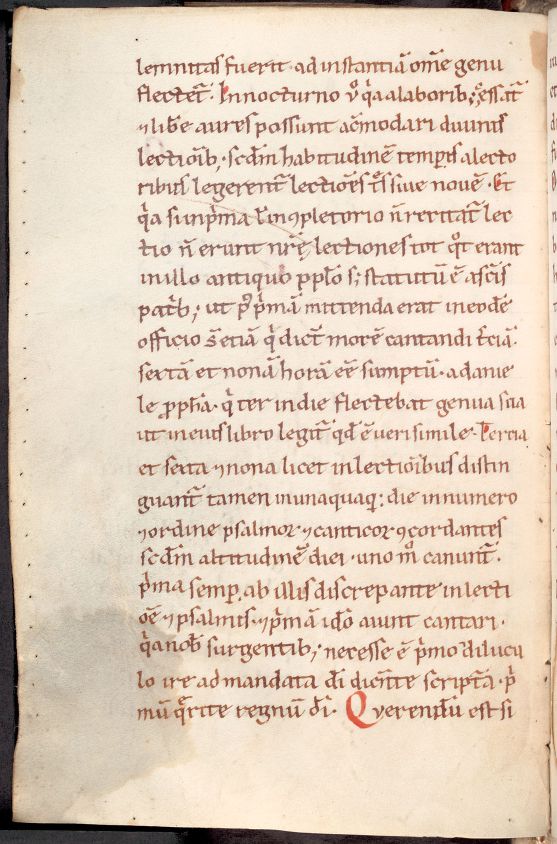 lemnitas fuerit · ad instantiā om̄e genu
flectet᷑. In nocturno v̊ q̓a a laborib; cessat᷑
⁊ lib̓e aures possunt acōmodari diuinis
lectioīb; · scd̄m habitudinē temporis a lecto
ribus legerent᷑ lectioēs t̓s siue nouē · Et
q̓a si in p̓ma ł in ꝯpletorio ñ recitat᷑ lec
tio ñ erunt nr̄ę lectiones tot qt̊ erant
in illo antiquo pp̄lo
pat̓b; ut p̓ p̓mā mittenda erat in eodē
officio
sextā et nonā horā eē sumptū · a danie
le ꝓph̄a · q̓ ter in die flectebat genua sua
ut in eius libro legit᷑ qd̄ ē uerisimile · Tercia
et sexta ⁊ nona licet in lectioībus distin
guant᷑ tamen in unaquaq; die in numero
⁊ ordine psalmoꝝ ⁊ canticoꝝ ꝯcordantes
scd̄m altitudinē diei · uno m̊ canunt᷑.
p̓ma semp̱ ab illis discrepante in lecti
oē ⁊ psalmis · ⁊ p̓mā id̊o aiunt cantari ·
q̓a nob̄ surgentib; necesse ē p̓mo diluculo
lo ire ad mandata dī dicēte scriptā · p̓
mū q̄rite regnū dī · Querendū est si